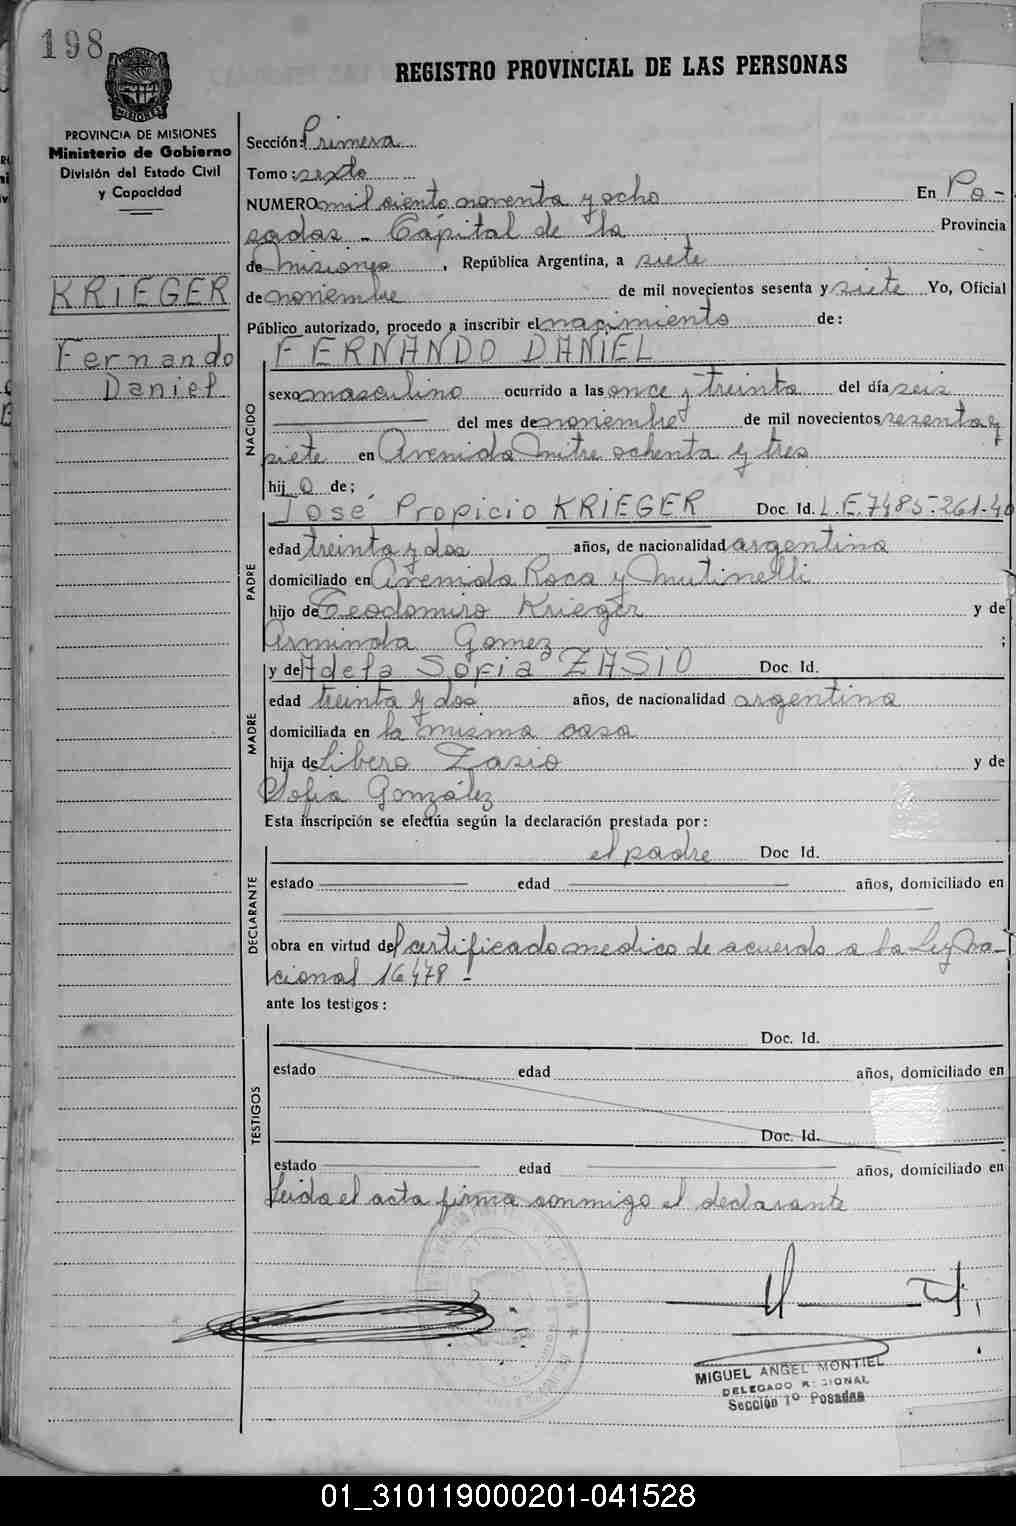 198
REGISTRO PROVINCIAL DE LAS PERSONAS
MISIONES
PROVINCIA DE MISIONES
Ministerio de Gobierno
División del Estado Civil
y Capacidad
KRIEGER
Fernando
Daniel
Sección: Primera
Tomo: sexto
NUMERO mil ciento noventa y ocho En Po-
sadas - Capital de la Provincia
de Misiones, República Argentina, a siete
de noviembre de mil novecientos sesenta y siete Yo, Oficial
Público autorizado, procedo a inscribir el nacimiento de:
FERNANDO DANIEL
NACIDO
sexo masculino ocurrido a las once y treinta del día seis
del mes de noviembre de mil novecientos sesenta y
siete en Avenida Mitre ochenta y tres
hij o de;
José Propicio KRIEGER Doc. Id. L.E. 7485-261-40
PADRE
edad treinta y dos años, de nacionalidad argentina
domiciliado en Avenida Roca y Mutinelli
hijo de Teodomiro Krieger y de
Arminda Gomez ;
y de Adela Sofia ZASIO Doc. Id.
MADRE
edad treinta y dos años, de nacionalidad argentina
domiciliada en la misma casa
hija de Libero Zasio y de
Sofia González
Esta inscripción se efectúa según la declaración prestada por:
el padre Doc Id.
DECLARANTE
estado edad años, domiciliado en
obra en virtud del certificado medico de acuerdo a la Ley Na-
cional 16478 -
ante los testigos:
Doc. Id.
TESTIGOS
estado edad años, domiciliado en
Doc. Id.
estado edad años, domiciliado en
Leida el acta firma conmigo el declarante
MIGUEL ANGEL MONTIEL
DELEGADO REGIONAL
Sección 1º Posadas
01_310119000201-041528